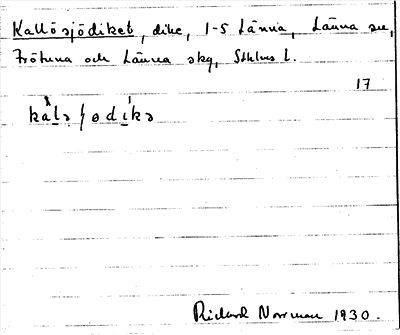 Kallösjödiket, dike, 1-5 Länna, Länna sn,
Frötuna och Länna skg, Sthlms l.
17
kàlə ʃødi̱kə
Rickard Norrman 1930.